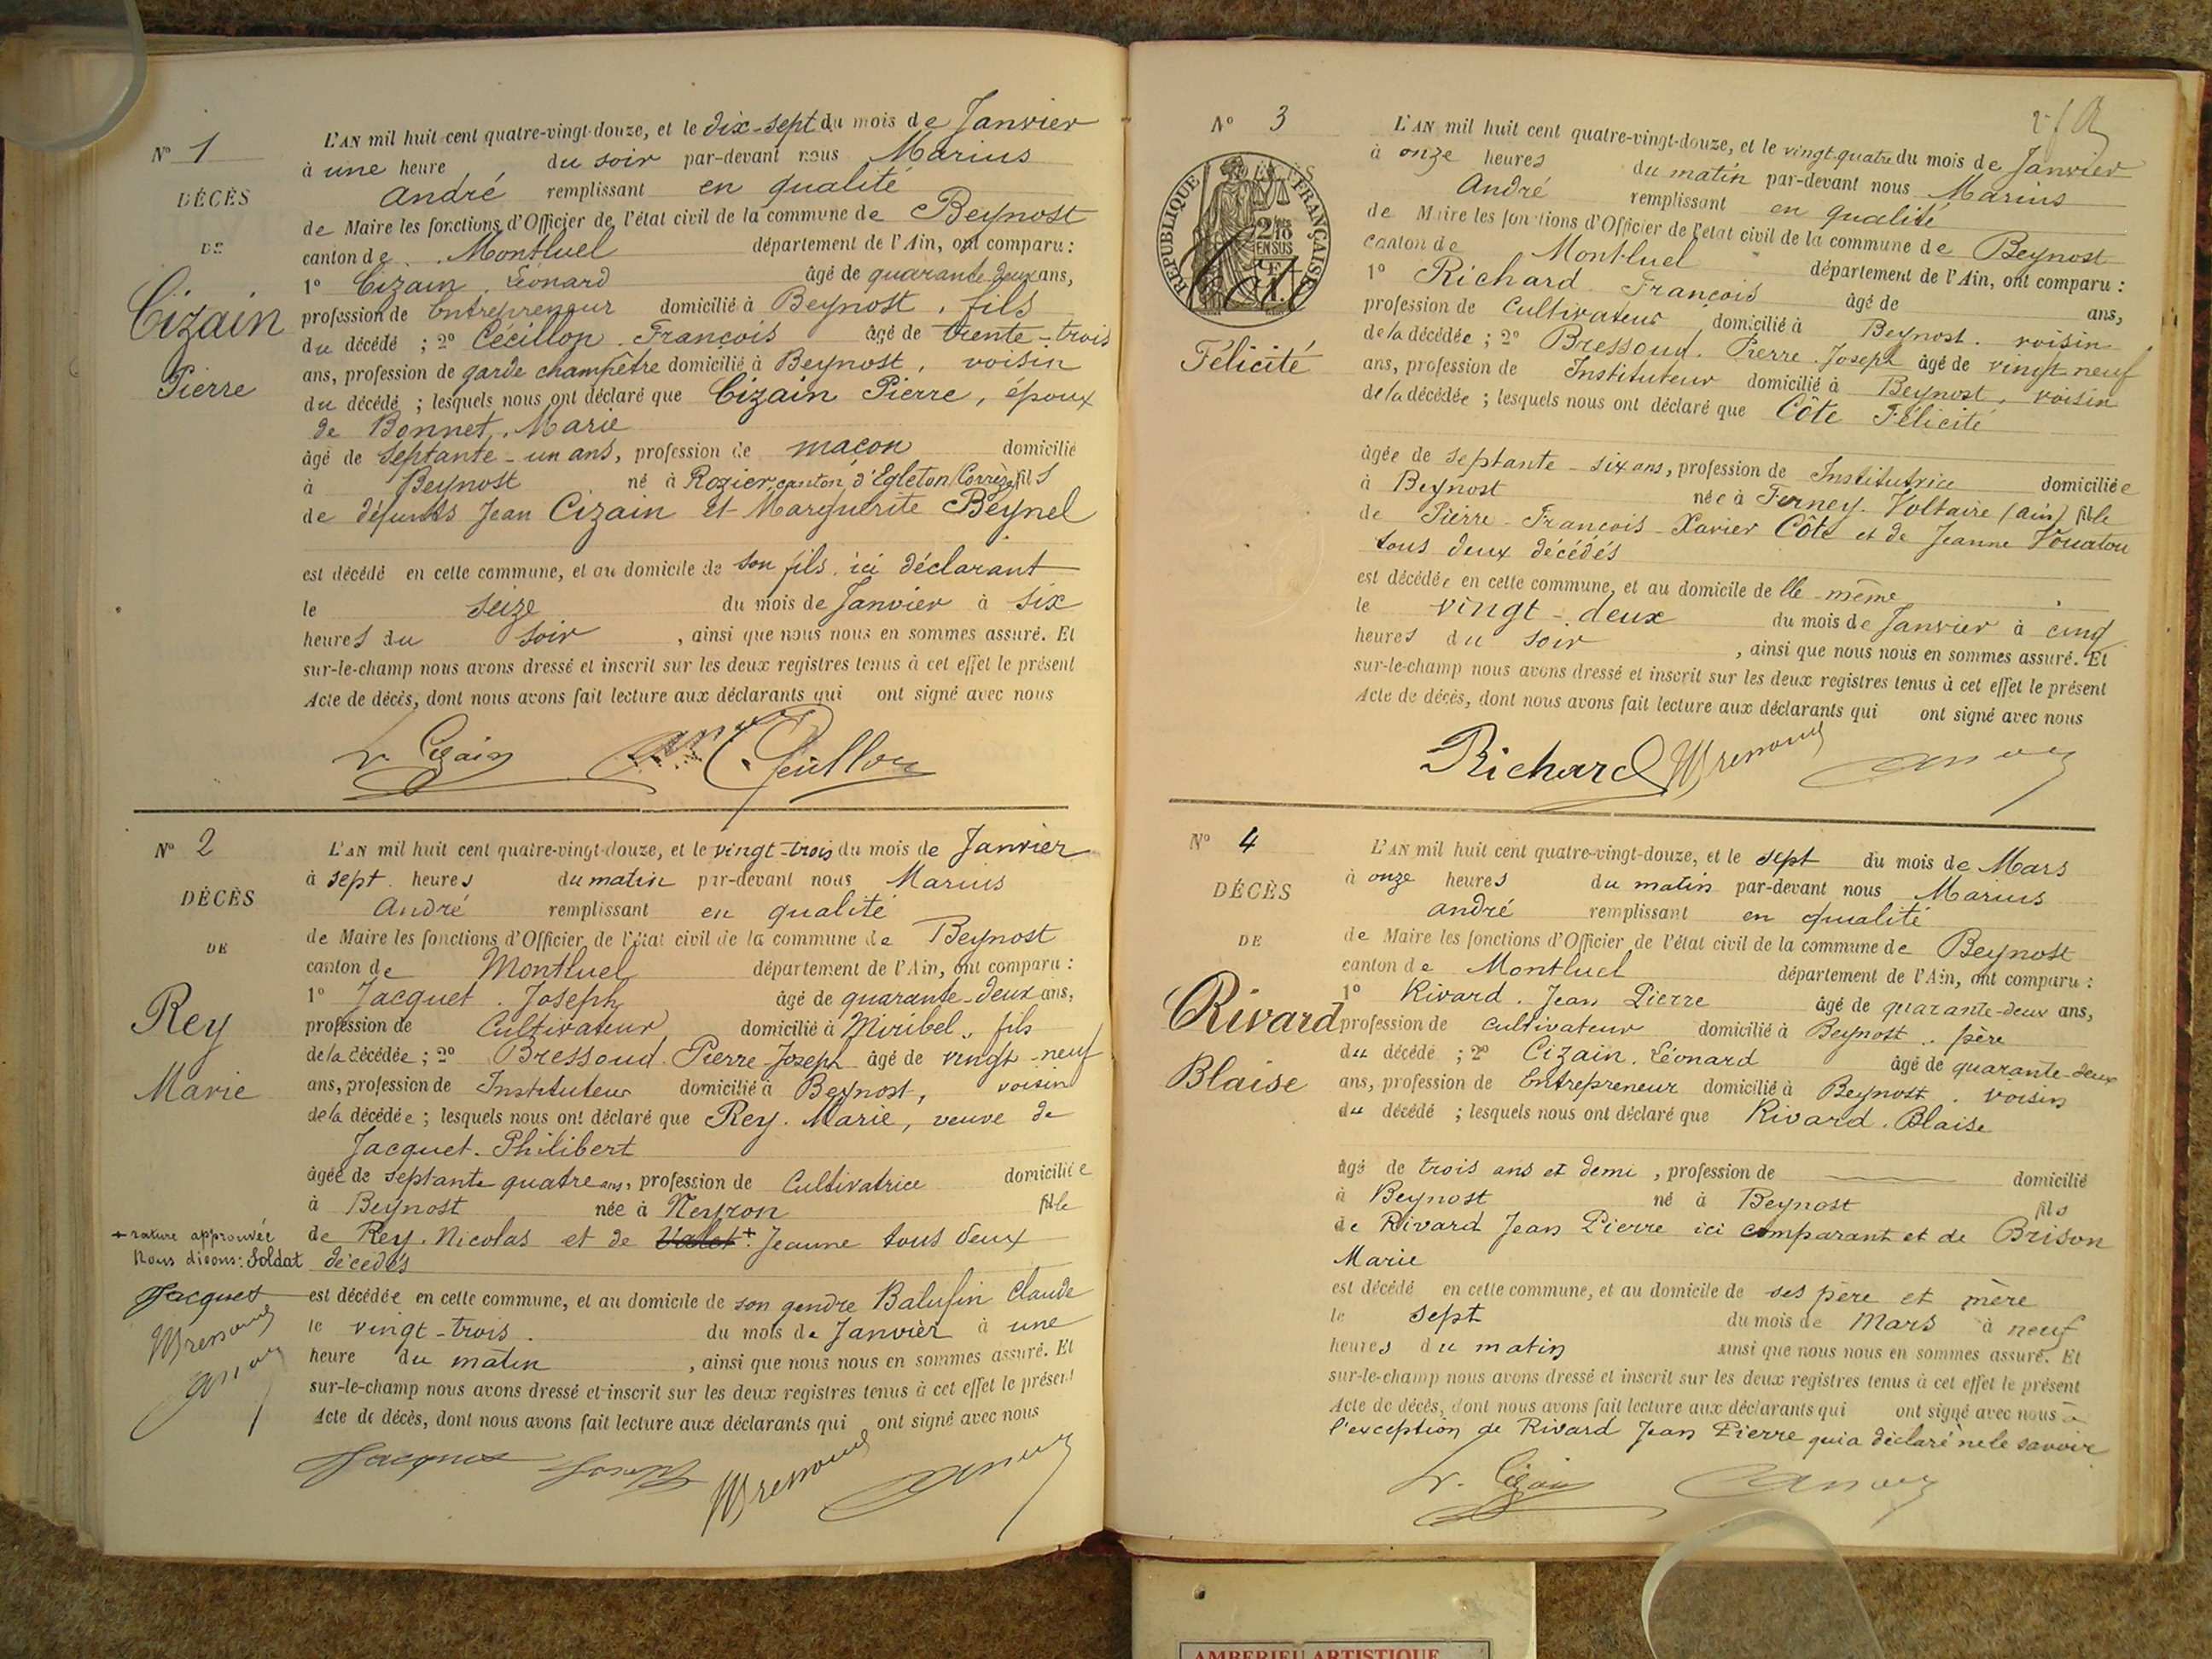 N° 1
DÉCÈS
DE
Cizain
Pierre
L'AN mil huit cent quatre-vingt-douze, et le dix-sept du mois de Janvier
à une heure du soir par-devant nous Marius
André remplissant en qualité
de Maire les fonctions d'Officier de l'état civil de la commune de Beynost
canton de Montluel département de l'Ain, ont comparu :
1° Cizain Léonard âgé de quarante-deux ans,
profession de Entrepreneur domicilié à Beynost, fils
du décédé ; 2° Cécillon François âgé de trente-trois
ans, profession de garde champêtre domicilié à Beynost, voisin
du décédé ; lesquels nous ont déclaré que Cizain Pierre, époux
de Bonnet, Marie
âgé de septante-un ans, profession de maçon domicilié
à Beynost né à Rozier, canton d'Egleton (Corrèze) fils
de défunts Jean Cizain et Marguerite Beynel
est décédé en cette commune, et au domicile de son fils, ici déclarant
le seize du mois de Janvier à six
heures du soir, ainsi que nous nous en sommes assuré. Et
sur-le-champ nous avons dressé et inscrit sur les deux registres tenus à cet effet le présent
Acte de décès, dont nous avons fait lecture aux déclarants qui ont signé avec nous
L. Cizain
N° 2
DÉCÈS
DE
Rey
Marie
L'AN mil huit cent quatre-vingt-douze, et le vingt-trois du mois de Janvier
à sept heures du matin par-devant nous Marius
André remplissant en qualité
de Maire les fonctions d'Officier de l'état civil de la commune de Beynost
canton de Montluel département de l'Ain, ont comparu :
1° Jacquet. Joseph âgé de quarante-deux ans,
profession de Cultivateur domicilié à Miribel, fils
de la décédée ; 2° Bressoud Pierre-Joseph âgé de vingt-neuf
ans, profession de Instituteur domicilié à Beynost, voisin
de la décédée ; lesquels nous ont déclaré que Rey. Marie, veuve de
Jacquet. Philibert
âgée de septante quatre ans, profession de Cultivatrice domiciliée
à Beynost née à Neyron fille
de Rey. Nicolas et de Valet + Jeanne tous deux
décédés
+ rature approuvée
Nous disons : Soldat
Jacquet
Bressoud
est décédée en cette commune, et au domicile de son gendre Balufin Claude
le vingt-trois du mois de Janvier à une
heure du matin, ainsi que nous nous en sommes assuré. Et
sur-le-champ nous avons dressé et inscrit sur les deux registres tenus à cet effet le présent
Acte de décès, dont nous avons fait lecture aux déclarants qui ont signé avec nous
Jacquet Joseph Bressoud
N° 3
RÉPUBLIQUE FRANÇAISE
Côte
Félicité
L'AN mil huit cent quatre-vingt-douze, et le vingt quatre du mois de Janvier
à onze heures du matin par-devant nous Marius
André remplissant en qualité
de Maire les fonctions d'Officier de l'état civil de la commune de Beynost
canton de Montluel département de l'Ain, ont comparu :
1° Richard François âgé de ans,
profession de Cultivateur domicilié à Beynost. voisin
de la décédée ; 2° Bressoud. Pierre-Joseph âgé de vingt neuf
ans, profession de Instituteur domicilié à Beynost, voisin
de la décédée ; lesquels nous ont déclaré que Côte Félicité
âgée de septante-six ans, profession de Institutrice domiciliée
à Beynost née à Ferney-Voltaire (Ain) fille
de Pierre-François-Xavier Côte et de Jeanne
tous deux décédés
est décédée en cette commune, et au domicile de lle-même
le vingt-deux du mois de Janvier à cinq
heures du soir, ainsi que nous nous en sommes assuré. Et
sur-le-champ nous avons dressé et inscrit sur les deux registres tenus à cet effet le présent
Acte de décès, dont nous avons fait lecture aux déclarants qui ont signé avec nous
Richard Bressoud
N° 4
DÉCÈS
DE
Rivard
Blaise
L'AN mil huit cent quatre-vingt-douze, et le sept du mois de Mars
à onze heures du matin par-devant nous Marius
André remplissant en qualité
de Maire les fonctions d'Officier de l'état civil de la commune de Beynost
canton de Montluel département de l'Ain, ont comparu :
1° Rivard. Jean Pierre âgé de quarante-deux ans,
profession de cultivateur domicilié à Beynost. père
du décédé ; 2° Cizain. Léonard âgé de quarante-deux
ans, profession de Entrepreneur domicilié à Beynost. voisin
du décédé ; lesquels nous ont déclaré que Rivard. Blaise
âgé de trois ans et demi, profession de domicilié
à Beynost né à Beynost fils
de Rivard Jean Pierre ici comparant et de Brison
Marie
est décédé en cette commune, et au domicile de ses père et mère
le sept du mois de Mars à neuf
heures du matin ainsi que nous nous en sommes assuré. Et
sur-le-champ nous avons dressé et inscrit sur les deux registres tenus à cet effet le présent
Acte de décès, dont nous avons fait lecture aux déclarants qui ont signé avec nous à
l'exception de Rivard Jean Pierre qui a déclaré ne le savoir
L. Cizain
AMBERIEU ARTISTIQUE